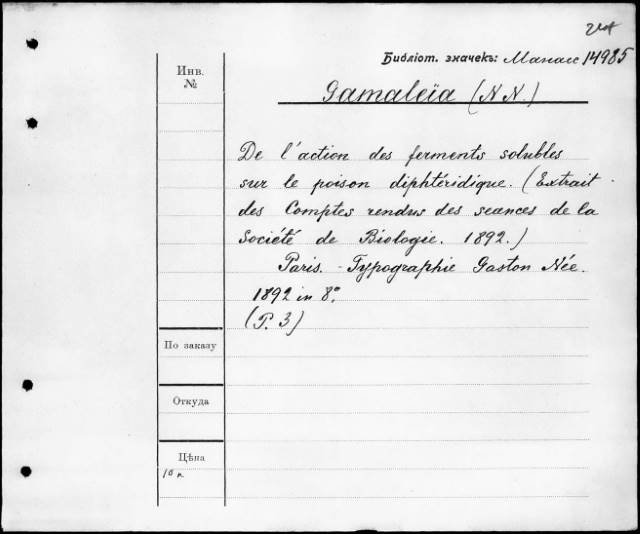 Библіот. значекъ: Манасе 14985
Инв.
№
Gamaleïa (N N.)
De l'action des ferments solubles
sur le poison diphtéridique. (Extrait
des Comptes rendus des seances de la
Société de Biologie. 1892.)
Paris. - Typographie Gaston Née.
1892 in 8°.
(P. 3)
По заказу
Откуда
Цѣна
10 к